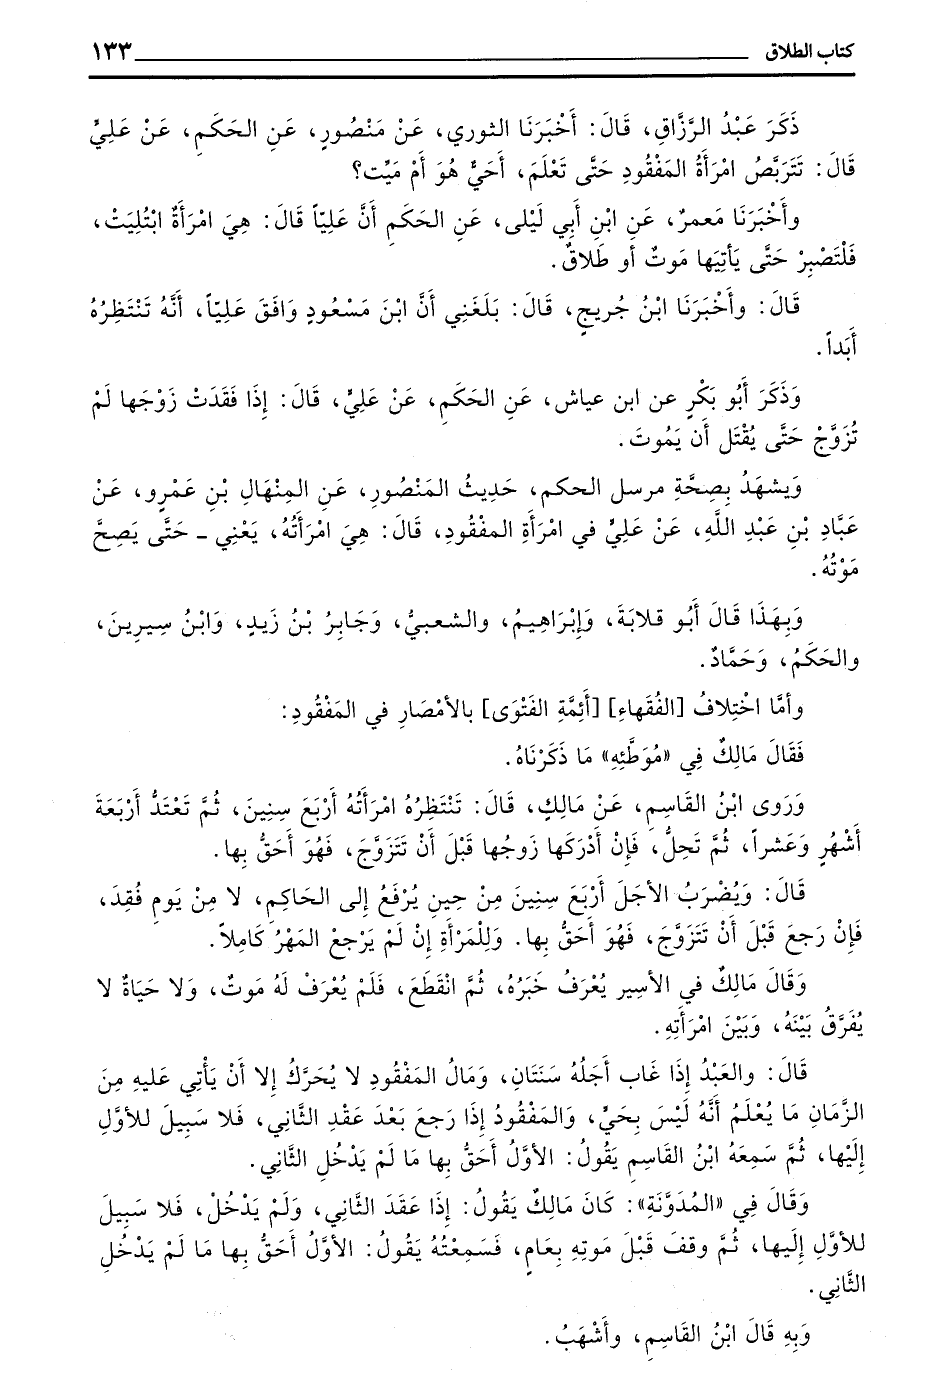 كتاب الطلاق ١٣٣
ذَكَرَ عَبْدُ الرَّزَّاقِ، قَالَ: أَخْبَرَنَا الثوري، عَنْ مَنْصُورٍ، عَنِ الحَكَمِ، عَنْ عَلِيٍّ
قَالَ: تَتَرَبَّصُ امْرَأَةُ المَفْقُودِ حَتَّى تَعْلَمَ، أَحَيٌّ هُوَ أَمْ مَيِّت؟
وأَخْبَرَنَا مَعمرٌ، عَنِ ابْنِ أَبِي لَيْلى، عَنِ الحَكَمِ أَنَّ عَلِيّاً قَالَ: هِيَ امْرَأَةٌ ابْتُلِيَتْ،
فَلْتَصْبِرْ حَتَّى يَأتِيَها مَوتٌ أو طَلاقٌ.
قَالَ: وأَخْبَرَنَا ابْنُ جُريجٍ، قَالَ: بَلَغَنِي أَنَّ ابْنَ مَسْعُودٍ وَافَقَ عَلِيّاً، أَنَّهُ تَنْتَظِرُهُ
أَبَداً.
وَذَكَرَ أَبُو بَكْرٍ عن ابن عياش، عَنِ الحَكَمِ، عَنْ عَلِيٍّ، قَالَ: إِذَا فَقَدَتْ زَوْجَها لَمْ
تُزَوَّجْ حَتَّى يُقْتَل أن يَمُوتَ.
ويشهَدُ بِصِحَّةِ مرسل الحكم، حَدِيثُ المَنْصُورِ، عَنِ المِنْهَالِ بْنِ عَمْرِو، عَنْ
عَبَّادِ بْنِ عَبْدِ اللَّهِ، عَنْ عَلِيٍّ في امْرَأَةِ المفْقُودِ، قَالَ: هِيَ امْرَأَتُهُ، يَعْنِي ـ حَتَّى يَصِحَّ
مَوْتُهُ.
وَبِهَذَا قَالَ أَبُو قلابَةَ، وَإِبْرَاهِيمُ، والشعبيُّ، وَجَابِرُ بْنُ زَيدٍ، وَابْنُ سِيرِينَ،
والحَكَمُ، وَحَمَّادٌ.
وأمَّا اخْتِلافُ [الفُقَهاءِ] [أَئِمَّةِ الفَتْوَى] بالأمْصَارِ في المَفْقُودِ:
فَقَالَ مَالِكٌ فِي «مُوَطَّئِهِ» مَا ذَكَرْنَاهُ.
وَرَوى ابْنُ القَاسِمِ، عَنْ مَالِكٍ، قَالَ: تَنْتَظِرُهُ امْرَأَتُهُ أَرْبَعَ سِنِينَ، ثُمَّ تَعْتَدُّ أَرْبَعَةَ
أَشْهُرٍ وَعَشراً، ثُمَّ تَحِلُّ، فَإِنْ أَدْرَكَها زَوجُها قَبْلَ أَنْ تَتَزَوَّجَ، فَهُوَ أَحَقُّ بِها.
قَالَ: وَيُضْرَبُ الأجَلُ أَرْبَعَ سِنِينَ مِنْ حِينِ يُرْفَعُ إِلى الحَاكِمِ، لا مِنْ يَومِ فُقِدَ،
فَإِنْ رَجعَ قَبْلَ أَنْ تَتَزَوَّجَ، فَهُوَ أَحَقُّ بِها. وَلِلْمَرْأَةِ إِنْ لَمْ يَرْجعِ المَهْرُ كَامِلاً.
وَقَالَ مَالِكٌ في الأسِيرِ يُعْرَفُ خَبَرُهُ، ثُمَّ انْقَطَعَ، فَلَمْ يُعْرَفْ لَهُ مَوتٌ، وَلا حَيَاةٌ لا
يُفَرَّقُ بَيْنَهُ، وَبَيْنَ امْرَأَتِهِ.
قَالَ: والعَبْدُ إِذَا غَاب أَجَلُهُ سَنَتَانِ، وَمَالُ المَفْقُودِ لا يُحَرَّكُ إِلا أَنْ يَأْتِي عَليهِ مِنَ
الزَّمَانِ مَا يُعْلَمُ أَنَّهُ لَيْسَ بِحَيٍّ، وَالمَفْقُودُ إِذَا رَجعَ بَعْدَ عَقْدِ الثَّانِي، فَلا سَبِيلَ للأوَّلِ
إِلَيْها، ثُمَّ سَمِعَهُ ابْنُ القَاسِمِ يَقُولُ: الأوَّلُ أَحَقُّ بِها مَا لَمْ يَدْخُلِ الثَّانِي.
وَقَالَ فِي «المُدَوَّنَةِ»: كَانَ مَالِكٌ يَقُولُ: إِذَا عَقَدَ الثَّانِي، وَلَمْ يَدْخُلْ، فَلا سَبِيلَ
للأوَّلِ إِلَيها، ثُمَّ وقفَ قَبْلَ مَوتِهِ بِعَامٍ، فَسَمِعْتُهُ يَقُولُ: الأوَّلُ أَحَقُّ بِها مَا لَمْ يَدْخُلِ
الثَّانِي.
وَبِهِ قَالَ ابْنُ القَاسِمِ، وأَشْهَبُ.